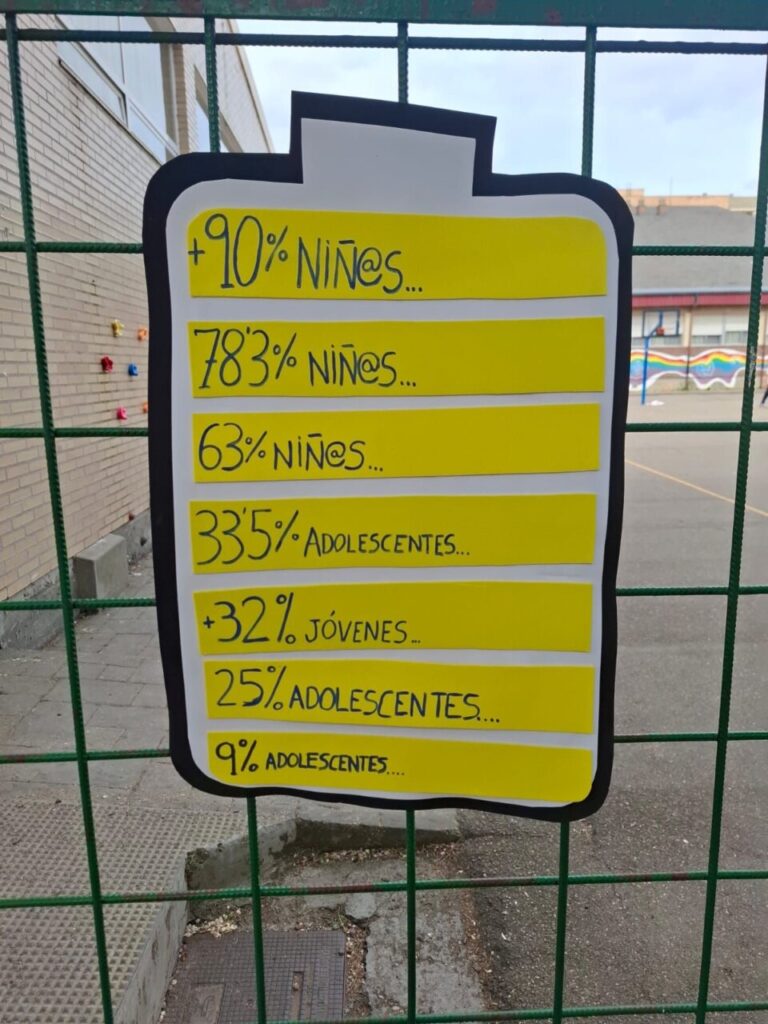 +90% NIÑ@S...
78'3% NIÑ@S...
63% NIÑ@S...
33'5% ADOLESCENTES...
+32% JÓVENES...
25% ADOLESCENTES....
9% ADOLESCENTES....